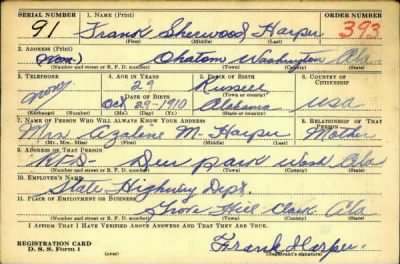 SERIAL NUMBER 1. NAME (Print) ORDER NUMBER
91 Frank Sherwood Harper 393
(First) (Middle) (Last)
2. ADDRESS (Print)
(None) Chatom Washington Ala
(Number and street or R. F. D. number) (Town) (County) (State)
3. TELEPHONE 4. AGE IN YEARS 5. PLACE OF BIRTH 6. COUNTRY OF CITIZENSHIP
None 29
DATE OF BIRTH (Town or county)
Oct 29-1910 Alabama USA
(Exchange) (Number) (Mo.) (Day) (Yr.) (State or country)
7. NAME OF PERSON WHO WILL ALWAYS KNOW YOUR ADDRESS 8. RELATIONSHIP OF THAT PERSON
Mrs. Azalene M. Harper Mother
(Mr., Mrs., Miss) (First) (Middle) (Last)
9. ADDRESS OF THAT PERSON
R.F.D- Deer park Wash Ala
(Number and street or R. F. D. number) (Town) (County) (State)
10. EMPLOYER'S NAME
State Highway Dept.
11. PLACE OF EMPLOYMENT OR BUSINESS
Grove Hill Clark Ala
(Number and street or R. F. D. number) (Town) (County) (State)
I AFFIRM THAT I HAVE VERIFIED ABOVE ANSWERS AND THAT THEY ARE TRUE.
REGISTRATION CARD
D. S. S. Form 1
Frank Harper
(Registrant's signature)